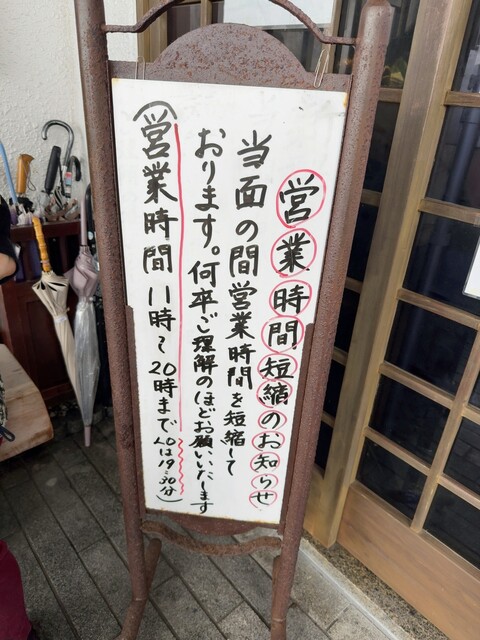 営業時間短縮のお知らせ
当面の間営業時間を短縮して
おります。何卒ご理解のほどお願いいたします
(営業時間11時~20時までLOは19:30分)